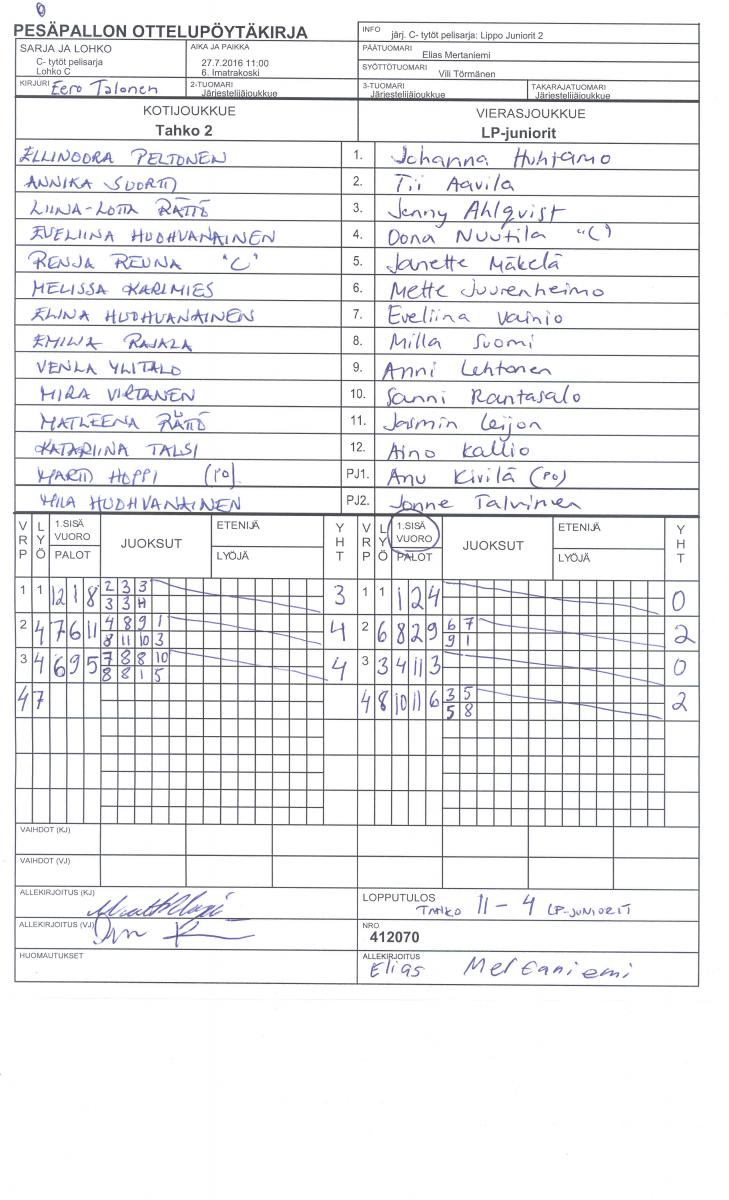 PESÄPALLON OTTELUPÖYTÄKIRJA
INFO järj. C- tytöt pelisarja: Lippo Juniorit 2
SARJA JA LOHKO
C- tytöt pelisarja
Lohko C
AIKA JA PAIKKA
27.7.2016 11:00
6. Imatrakoski
PÄÄTUOMARI
Elias Mertaniemi
SYÖTTÖTUOMARI
Vili Törmänen
KIRJURI Eero Talonen
2-TUOMARI
Järjestelijäjoukkue
3-TUOMARI
Järjestelijäjoukkue
TAKARAJATUOMARI
Järjestelijäjoukkue
KOTIJOUKKUE VIERASJOUKKUE
Tahko 2 LP-juniorit
ELLINOORA PELTONEN 1. Johanna Huhtamo
ANNIKA SUORTTI 2. Tii Aavila
LIINA-LOTTA RÄTTÖ 3. Jenny Ahlqvist
EVELIINA HUOHVANAINEN 4. Oona Nuutila "C"
RENJA REUNA "C" 5. Janette Mäkelä
MELISSA KARIMIES 6. Mette Juurenheimo
ELINA HUOHVANAINEN 7. Eveliina Vainio
EMILIA RAJALA 8. Milla Suomi
VENLA YLITALO 9. Anni Lehtonen
MIRA VIRTANEN 10. Sanni Rantasalo
MATLEENA RÄTTÖ 11. Jasmin Leijon
KATARIINA TALSI 12. Aino Kallio
MARTTI HOPPI (PO) PJ1. Anu Kivilä (PO)
MIIA HUOHVANAINEN PJ2. Jonne Talvinen
VRP LYÖ 1.SISÄ VUORO PALOT JUOKSUT ETENIJÄ LYÖJÄ YHT VRP LYÖ 1.SISÄ VUORO PALOT JUOKSUT ETENIJÄ LYÖJÄ YHT
1 1 12 1 8 2 3 3 3 1 1 1 2 4 0
3 3 H
2 4 7 6 11 4 8 9 1 4 2 6 8 2 9 6 7 2
8 11 10 3 9 1
3 4 6 9 5 7 8 8 10 4 3 3 4 11 3 0
8 8 1 5
4 7 4 8 10 11 6 3 5 2
5 8
VAIHDOT (KJ)
VAIHDOT (VJ)
ALLEKIRJOITUS (KJ)
LOPPUTULOS
TAHKO 11 - 4 LP-JUNIORIT
ALLEKIRJOITUS (VJ)
NRO
412070
HUOMAUTUKSET
ALLEKIRJOITUS
Elias Mertaniemi